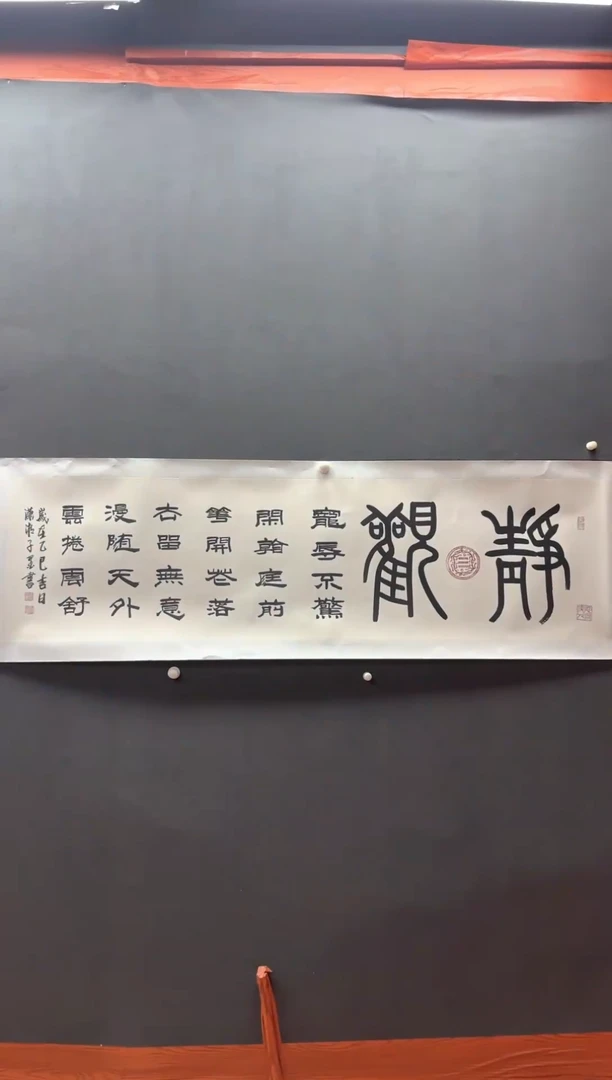 靜觀
寵辱不驚
閑看庭前
華開花落
去留無意
漫随天外
雲捲雲舒
歲在乙巳吉日
子書